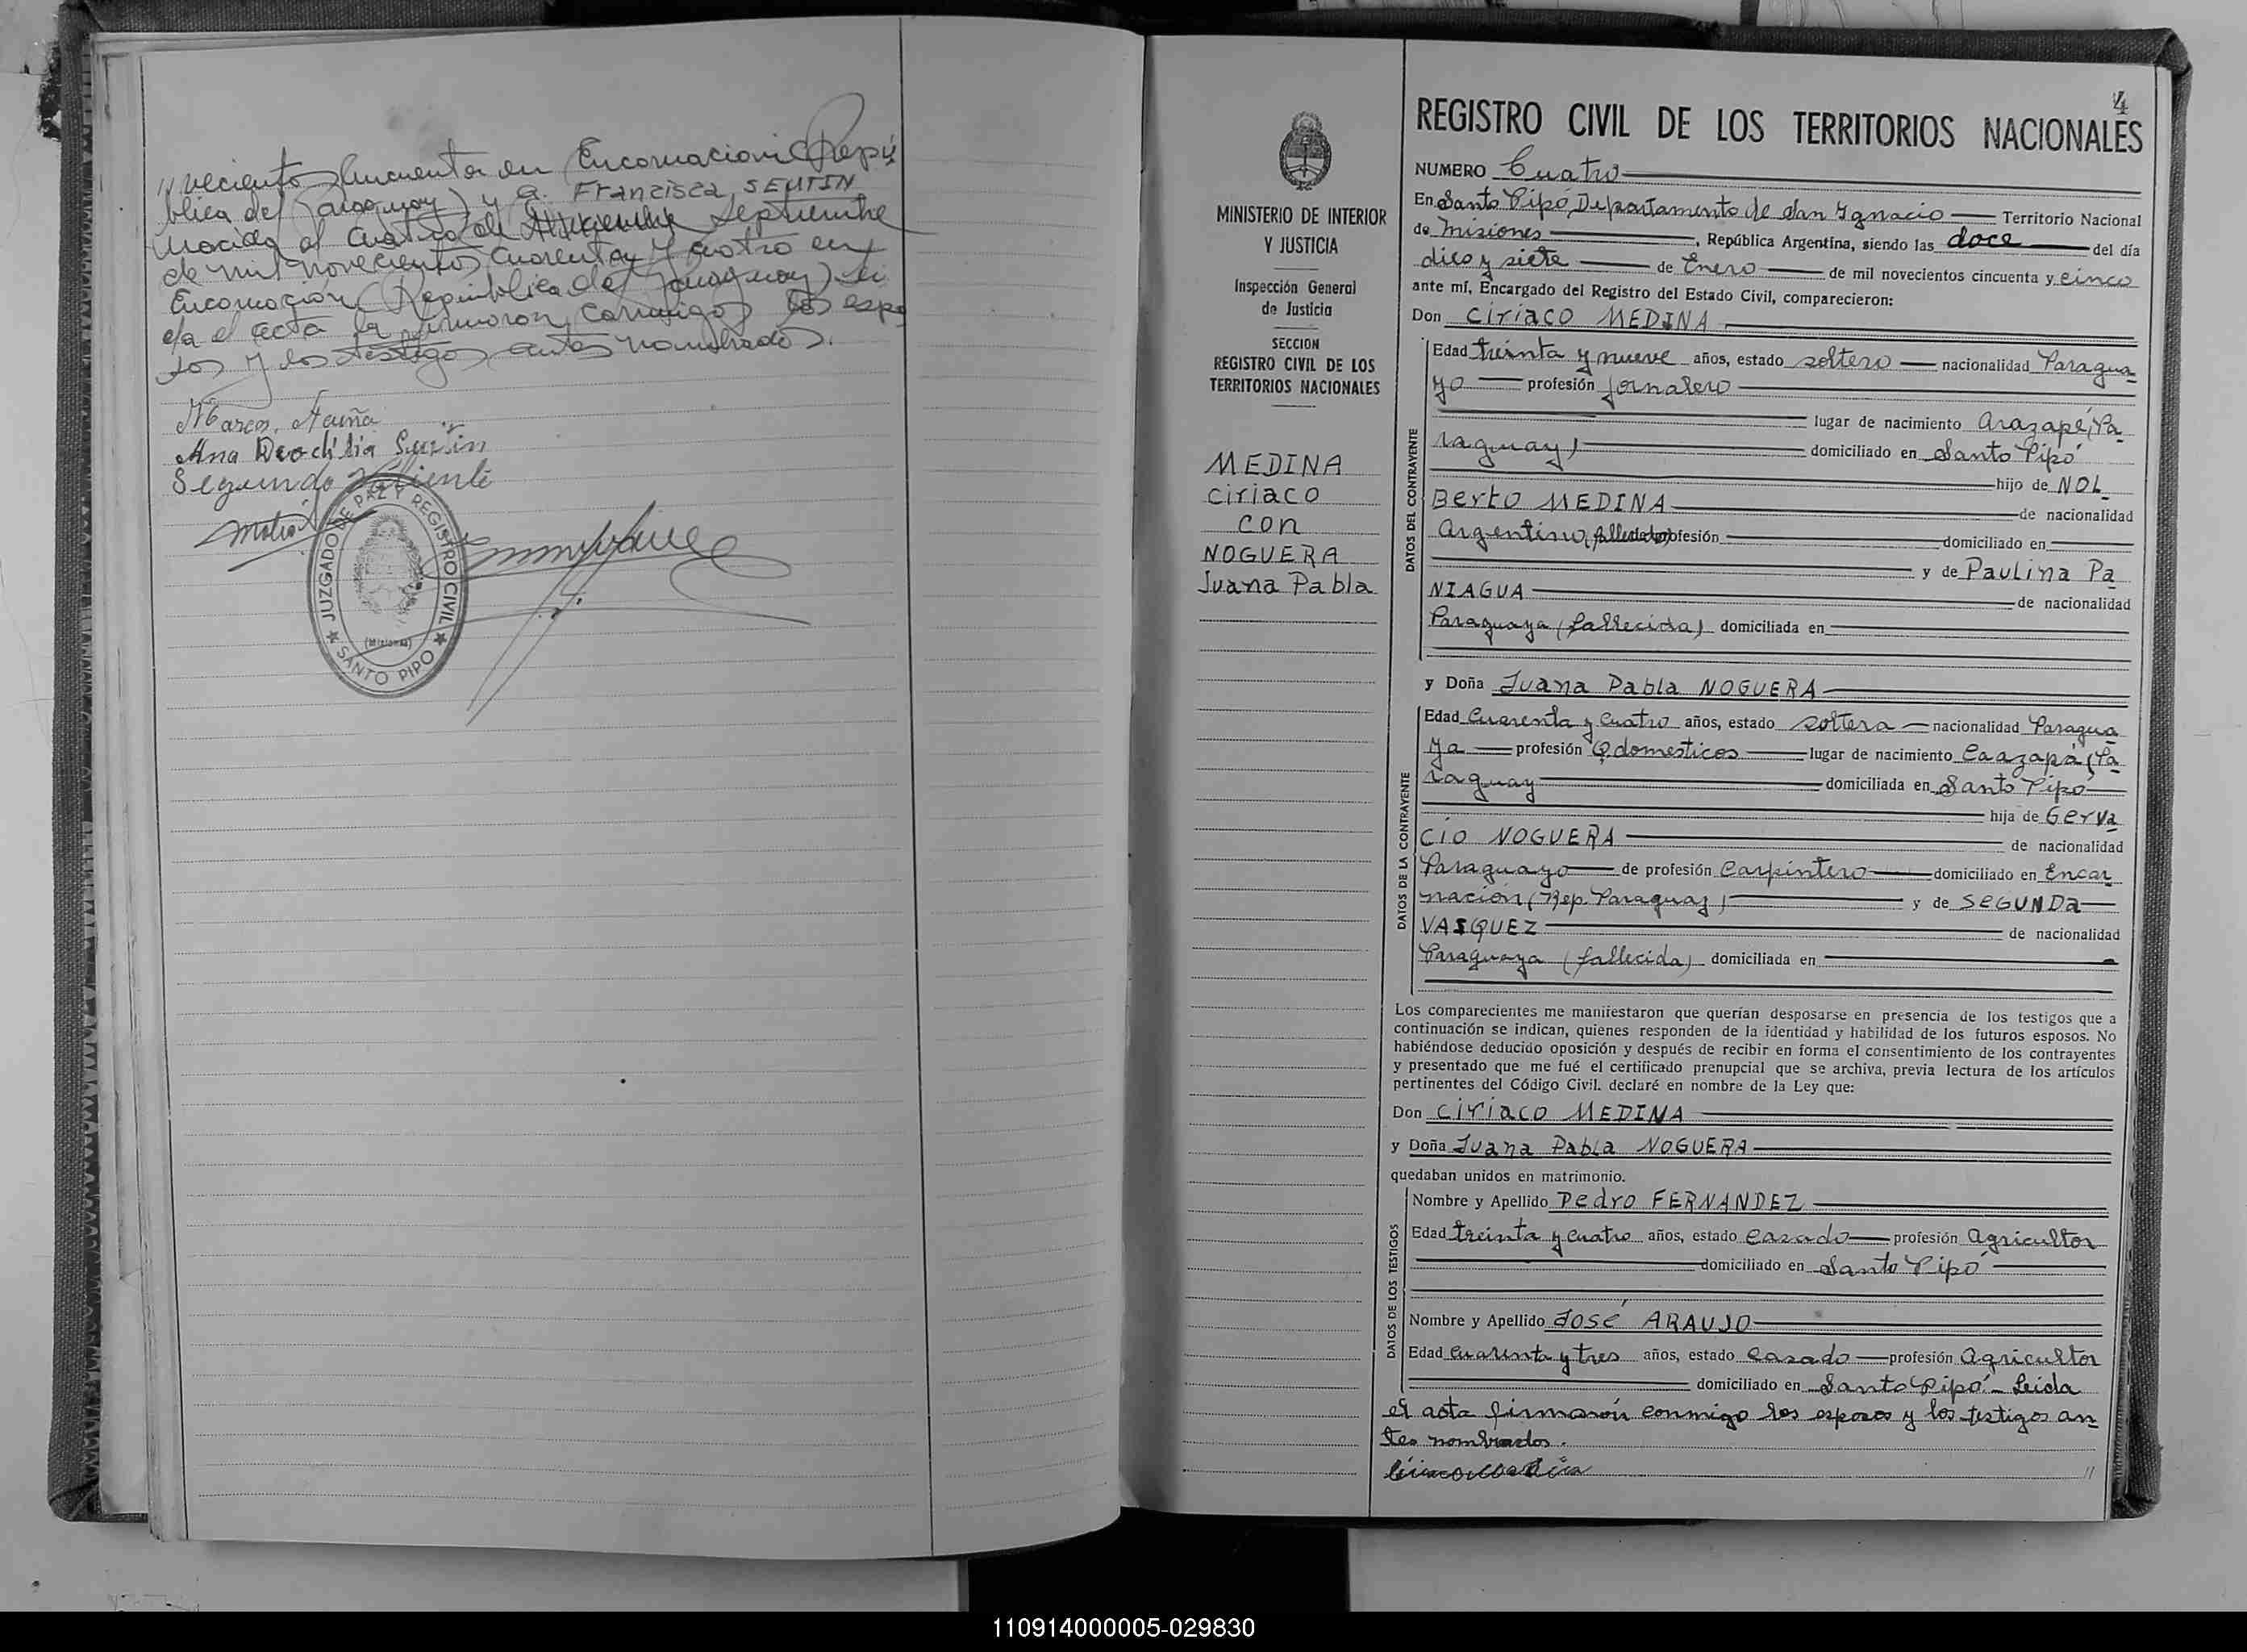 // vecientos cincuenta en Encarnación (Repú
blica del Paraguay) y a Francisca SEUTIN
nacida el cuatro de Septiembre
de mil novecientos cuarenta y cuatro en
Encarnación (República del Paraguay) Lei
da el acta la firmaron conmigo los espo
sos y los testigos antes nombrados.
Marcos Acuña
Ana
Segundo Valiente
JUZGADO DE PAZ Y REGISTRO CIVIL
(Misiones)
★ SANTO PIPO ★
4
REGISTRO CIVIL DE LOS TERRITORIOS NACIONALES
MINISTERIO DE INTERIOR
Y JUSTICIA
Inspección General
de Justicia
SECCION
REGISTRO CIVIL DE LOS
TERRITORIOS NACIONALES
MEDINA
ciriaco
con
NOGUERA
Juana Pabla
NUMERO Cuatro
En Santo Pipó, Departamento de San Ignacio Territorio Nacional
de Misiones, República Argentina, siendo las doce del día
diez y siete de Enero de mil novecientos cincuenta y cinco
ante mí, Encargado del Registro del Estado Civil, comparecieron:
Don ciriaco MEDINA
DATOS DEL CONTRAYENTE
Edad treinta y nueve años, estado soltero nacionalidad Paragua
yo profesión jornalero
lugar de nacimiento Arazapé, (Pa
raguay) domiciliado en Santo Pipó
hijo de NOL
Berto MEDINA de nacionalidad
Argentino, (fallecido) profesión domiciliado en
y de Paulina Pa
NIAGUA de nacionalidad
Paraguaya (fallecida) domiciliada en
y Doña Juana Pabla NOGUERA
DATOS DE LA CONTRAYENTE
Edad Cuarenta y Cuatro años, estado soltera nacionalidad Paragua
ya profesión Q. domesticos lugar de nacimiento Caazapá, (Pa
raguay domiciliada en Santo Pipó
hija de Gerva
cio NOGUERA de nacionalidad
Paraguayo de profesión Carpintero domiciliado en Encar
nación, (Rep. Paraguay) y de SEGUNDA
VASQUEZ de nacionalidad
Paraguaya (fallecida) domiciliada en
Los comparecientes me manifestaron que querían desposarse en presencia de los testigos que a
continuación se indican, quienes responden de la identidad y habilidad de los futuros esposos. No
habiéndose deducido oposición y después de recibir en forma el consentimiento de los contrayentes
y presentado que me fué el certificado prenupcial que se archiva, previa lectura de los artículos
pertinentes del Código Civil. declaré en nombre de la Ley que:
Don ciriaco MEDINA
y Doña Juana Pabla NOGUERA
quedaban unidos en matrimonio.
DATOS DE LOS TESTIGOS
Nombre y Apellido Pedro FERNANDEZ
Edad treinta y cuatro años, estado casado profesión Agricultor
domiciliado en Santo Pipó
Nombre y Apellido José ARAUJO
Edad Cuarenta y tres años, estado casado profesión Agricultor
domiciliado en Santo Pipó - Leida
el acta firmaron conmigo los esposos y los testigos an
tes nombrados.
//
110914000005-029830